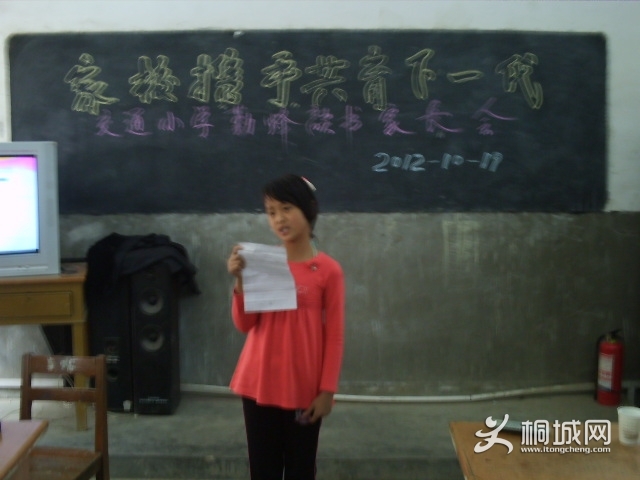 家校携手共育下一代
交通小学勤娇读书家长会
2012-10-19
桐城网
www.itongcheng.com